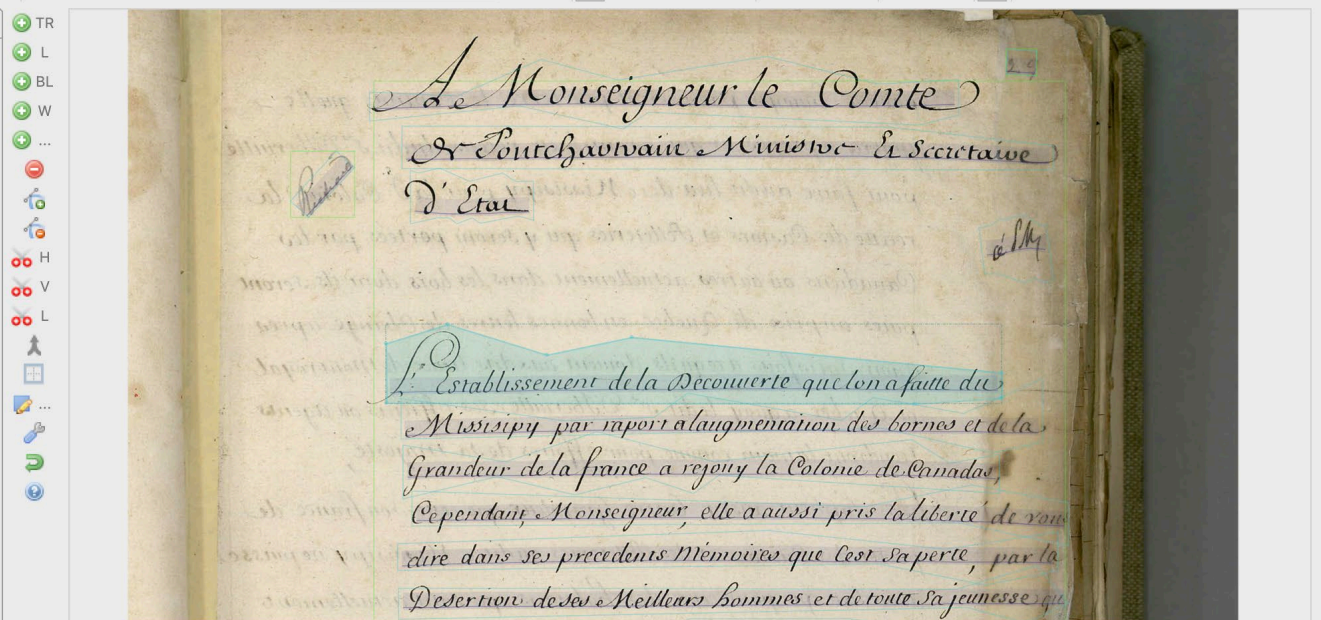 TR
L
BL
W
...
H
V
L
...
29
A Monseigneur le Comte
de Pontchartrain Ministre Et Secretaire
D'Etat
L'Establissement de la Decouverte que lon a faitte du
Missisipy par raport a laugmentation des bornes et de la
Grandeur de la france a rejouy la Colonie de Canadas,
Cependant, Monseigneur, elle a aussi pris la liberté de vous
dire dans ses precedents Mémoires que Cest Sa perte, par la
Desertion de ses Meilleurs hommes et de toute Sa jeunesse qui